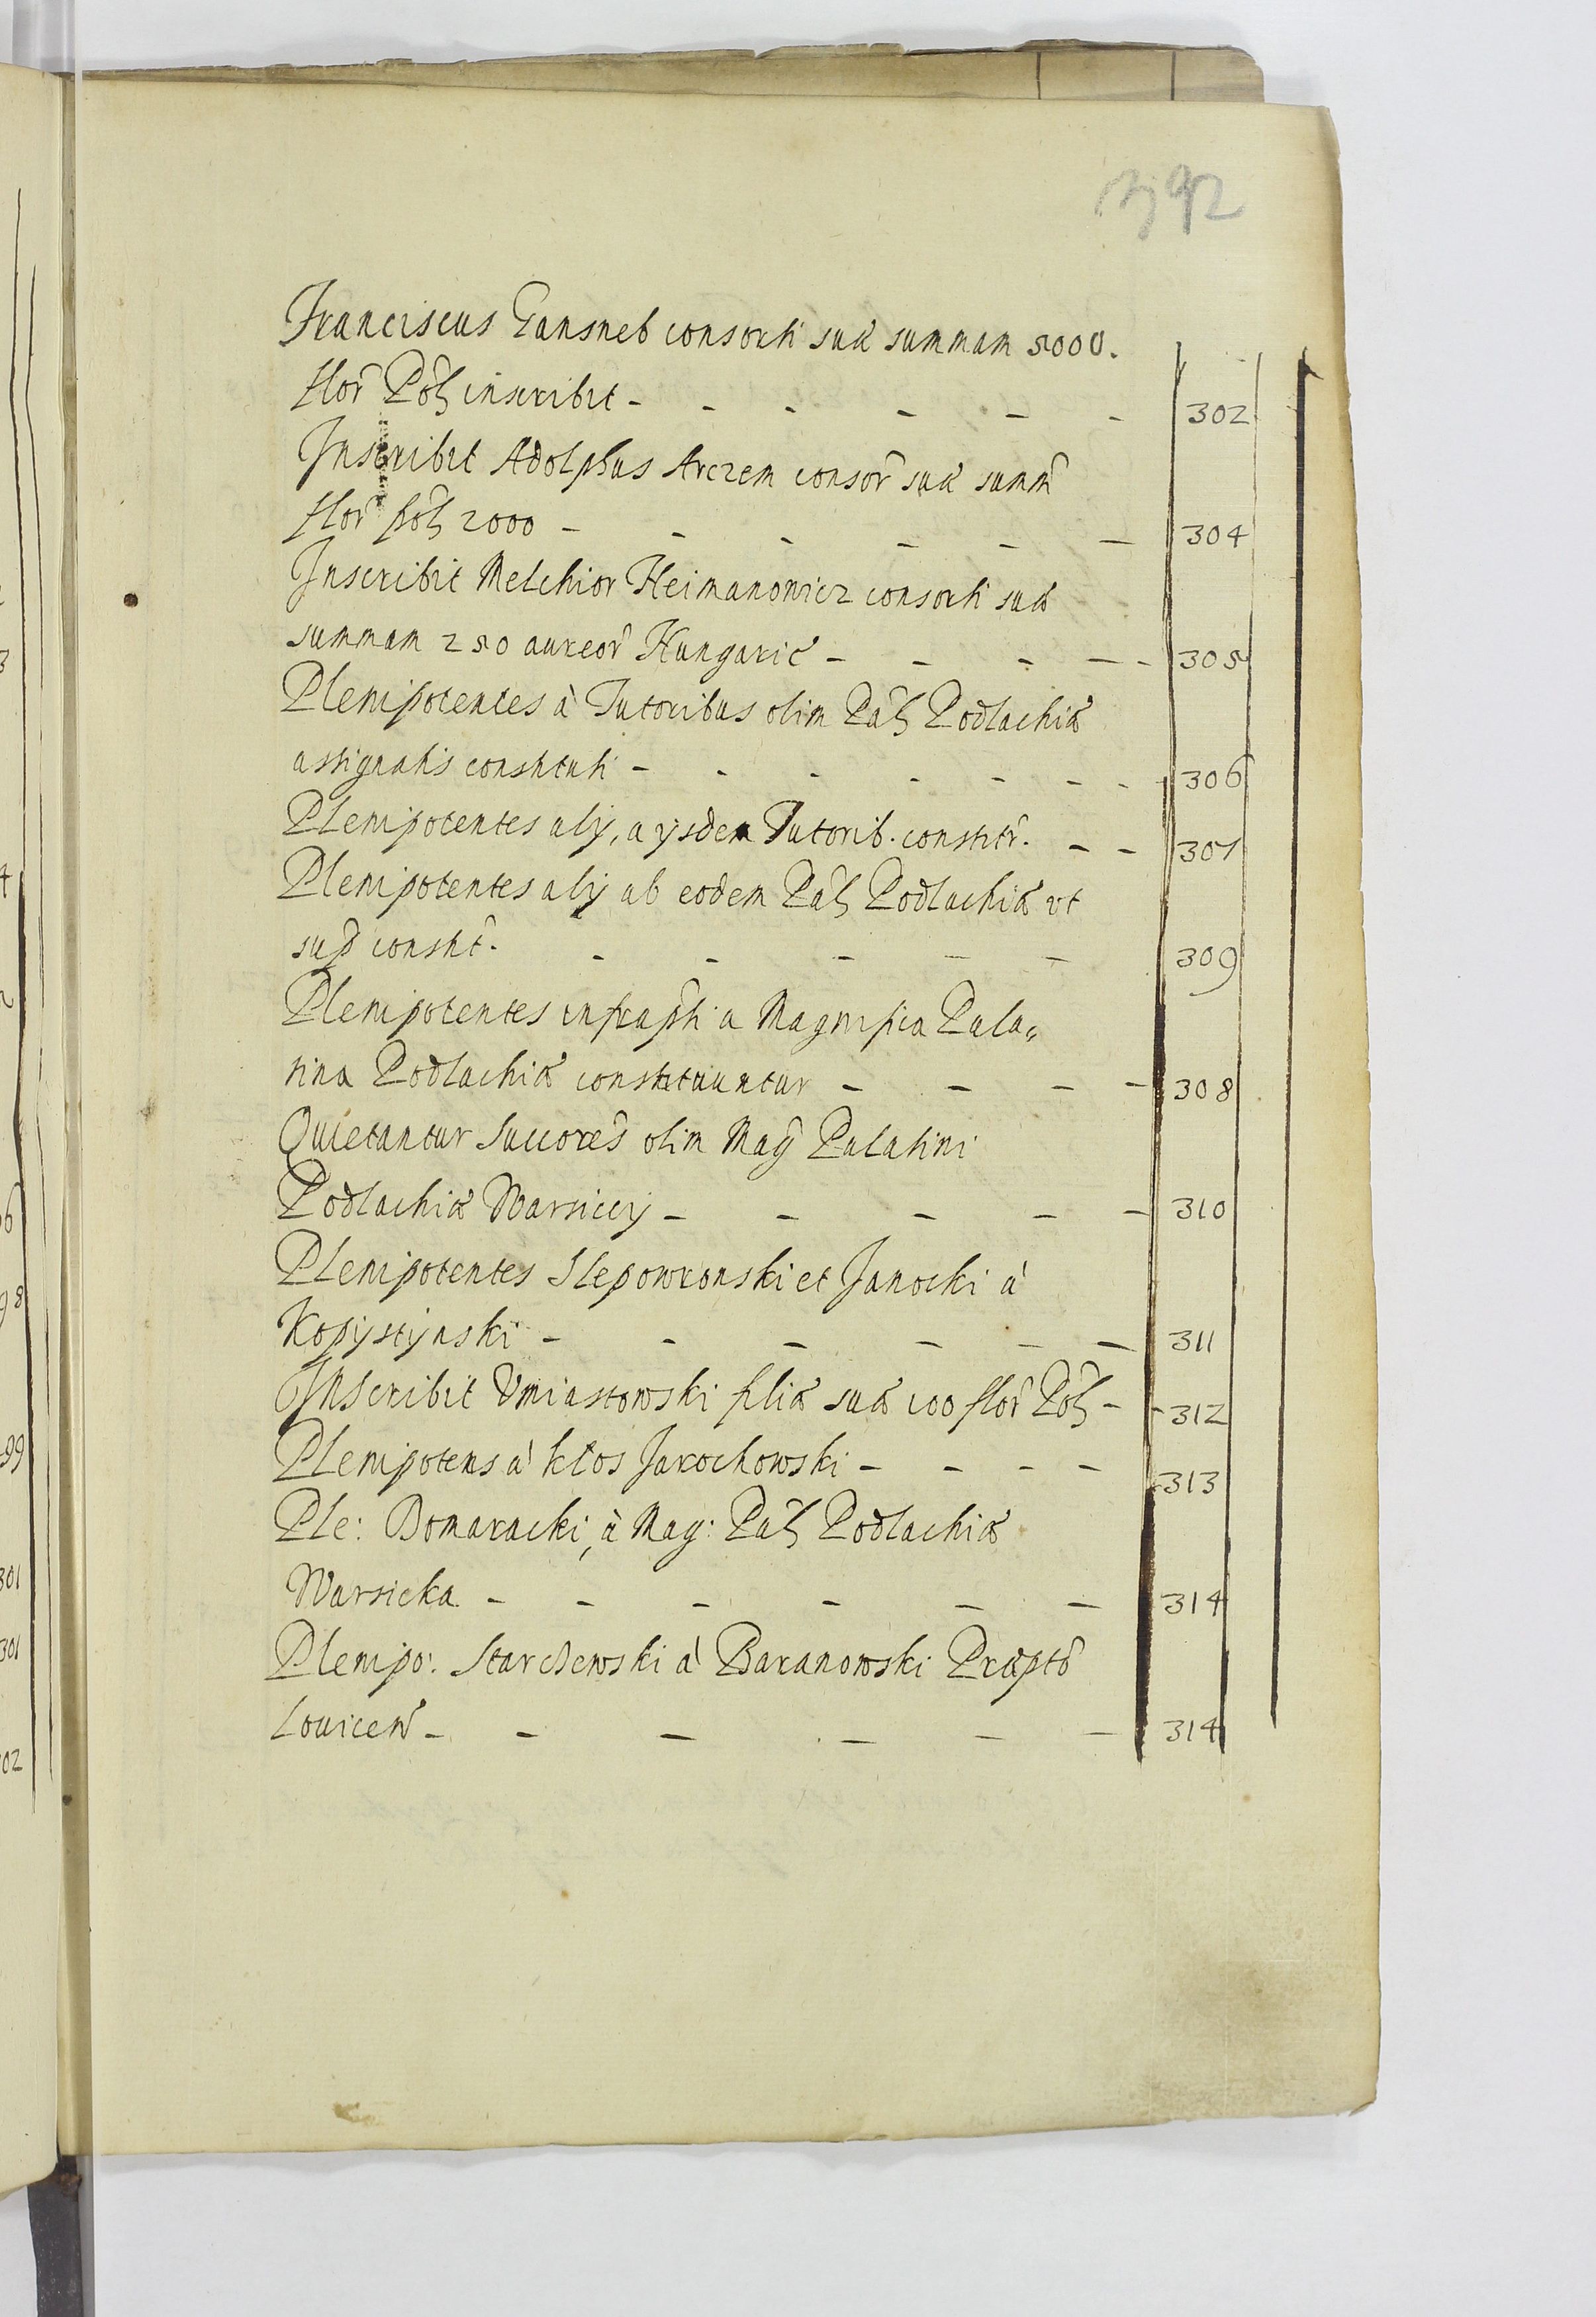 392
Franciscus Gansneb consorti suæ summam 5000.
flor Pol inscribit - - - - - - 302
Inscribit Adolphus Arczem consor suæ summ
flor pol 2000 - - - - - - 304
Inscribit Melchior Heimanowicz consorti suæ
summam 250 aureor Hungaric - - - - - 305
Plenipotentes à Tutoribus olim Pal Podlachiæ
assignatis constituti - - - - - - - 306
Plenipotentes alij, a ijsdem Tutorib. constitr. - - 307
Plenipotentes alij ab eodem Pal Podlachiæ vt
sup constit. - - - - - 309
Plenipotentes infrapti a Magnifica Pala„
tina Podlachiæ constituuntur - - - - 308
Quietantur Succores olim Mag Palatini
Podlachiæ Warsiccij - - - - - 310
Plenipotentes Slepowronski et Janocki à
Kopystynski - - - - - - 311
Inscribit Vmiastowski filiæ suæ 100 flor Pol - - 312
Plenipotens à Klos Jarochowski - - - - 313
Ple: Domaracki, à Mag: Pal Podlachiæ
Warsicka - - - - - - 314
Plenipo: Starczewski à Baranowski Præpto
Louicen - - - - - - 314